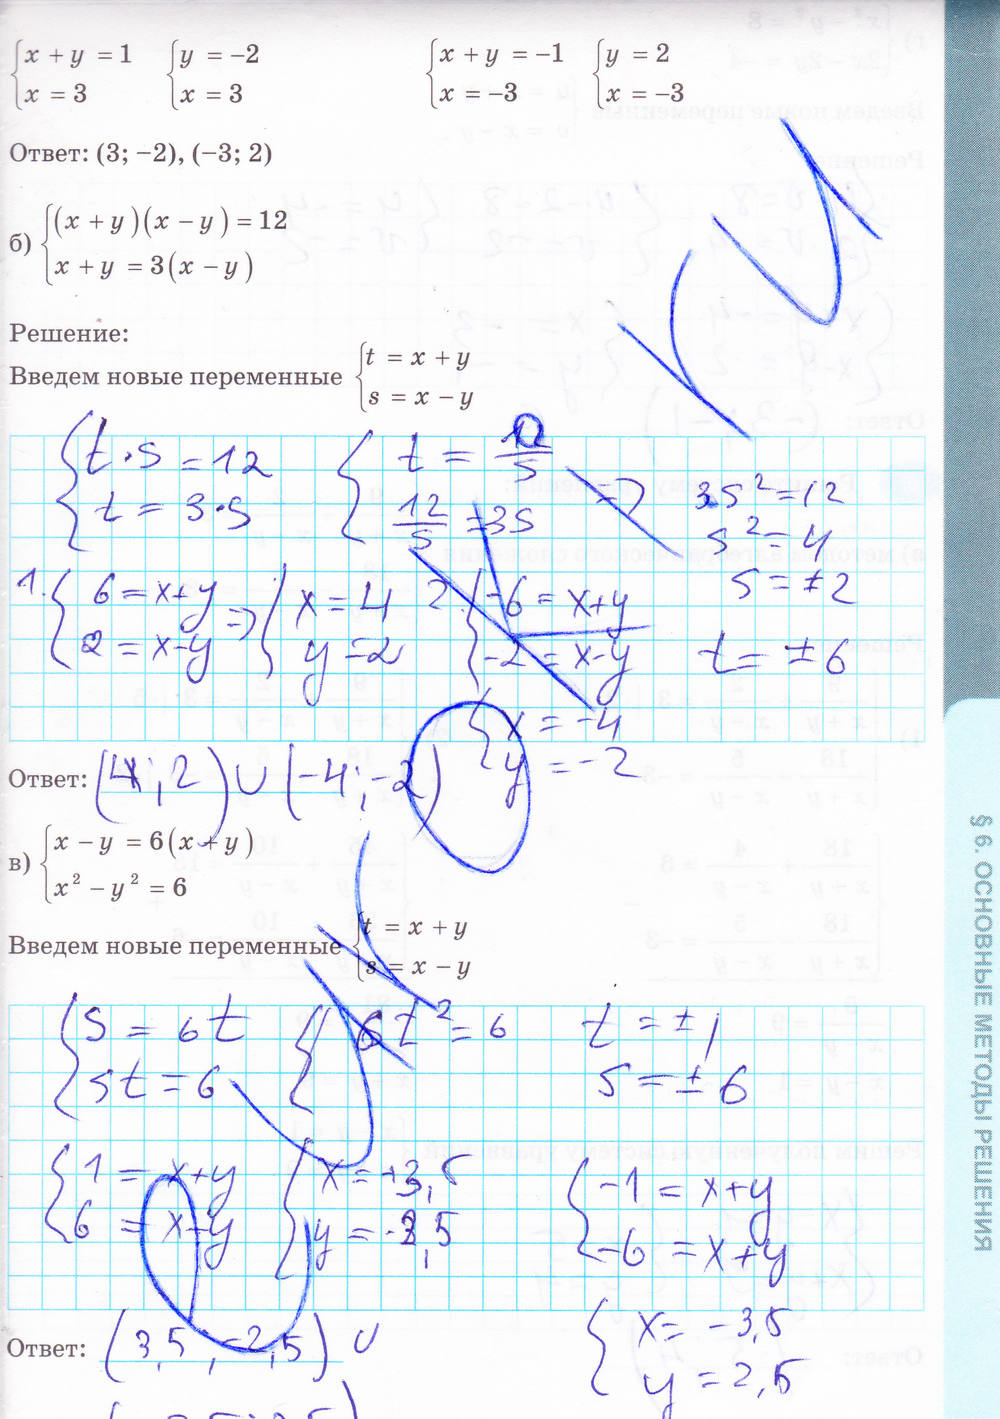 {x + y = 1 {y = −2 {x + y = −1 {y = 2
{x = 3 {x = 3 {x = −3 {x = −3
Ответ: (3; −2), (−3; 2)
б) {(x + y)(x − y) = 12
{x + y = 3(x − y)
Решение:
Введем новые переменные {t = x + y
{s = x − y
{t·s = 12 {t = 12/s
{t = 3·s {12/s = 3s => 3s² = 12
s² = 4
s = ±2
t = ±6
1. {6 = x+y => {x = 4 2. {-6 = x+y
{2 = x-y {y = 2 {-2 = x-y
{x = -4
{y = -2
Ответ: (4; 2) ∪ (-4; -2)
в) {x − y = 6(x + y)
{x² − y² = 6
Введем новые переменные {t = x + y
{s = x − y
{s = 6t {6t² = 6 t = ±1
{st = 6 s = ±6
{1 = x+y {x = 3,5 {-1 = x+y
{6 = x-y {y = -2,5 {-6 = x+y
{x = -3,5
{y = 2,5
Ответ: (3,5; -2,5) ∪
§ 6. ОСНОВНЫЕ МЕТОДЫ РЕШЕНИЯ